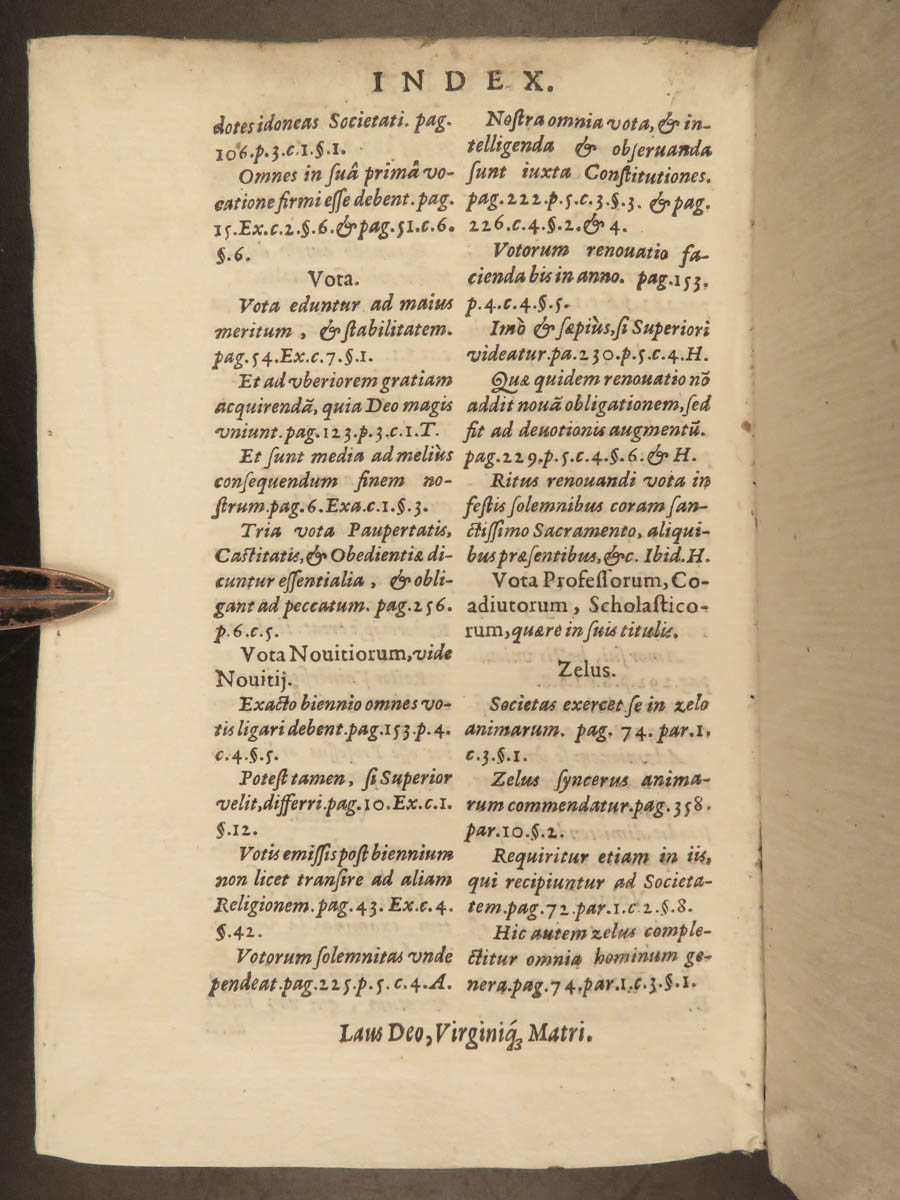 INDEX.
dotes idoneas Societati. pag.
106.p.3.c.1.§.1.
Omnes in suâ primâ vo-
catione firmi esse debent. pag.
15.Ex.c.2.§.6.& pag.51.c.6.
§.6.
Vota.
Vota eduntur ad maius
meritum , & stabilitatem.
pag.54.Ex.c.7.§.1.
Et ad vberiorem gratiam
acquirendã, quia Deo magis
vniunt.pag.123.p.3.c.1.T.
Et sunt media ad meliùs
consequendum finem no-
strum.pag.6.Exa.c.1.§.3.
Tria vota Paupertatis,
Castitatis, & Obedientiæ di-
cuntur essentialia , & obli-
gant ad peccatum. pag.256.
p.6.c.5.
Vota Nouitiorum, vide
Nouitij.
Exacto biennio omnes vo-
tis ligari debent.pag.153.p.4.
c.4.§.5.
Potest tamen, si Superior
velit, differri.pag.10.Ex.c.1.
§.12.
Votis emissis post biennium
non licet transire ad aliam
Religionem.pag.43. Ex.c.4.
§.42.
Votorum solemnitas vnde
pendeat.pag.225.p.5.c.4.A.
Nostra omnia vota, & in-
telligenda & obseruanda
sunt iuxta Constitutiones.
pag.222.p.5.c.3.§.3. & pag.
226.c.4.§.2.& 4.
Votorum renouatio fa-
cienda bis in anno. pag.153.
p.4.c.4.§.5.
Imò & sæpiùs, si Superiori
videatur.pa.230.p.5.c.4.H.
Quæ quidem renouatio nõ
addit nouã obligationem, sed
fit ad deuotionis augmentũ.
pag.229.p.5.c.4.§.6.& H.
Ritus renouandi vota in
festis solemnibus coram san-
ctissimo Sacramento, aliqui-
bus præsentibus, &c. Ibid.H.
Vota Professorum, Co-
adiutorum, Scholastico-
rum, quære in suis titulis.
Zelus.
Societas exercet se in zelo
animarum. pag. 74. par.1.
c.3.§.1.
Zelus syncerus anima-
rum commendatur.pag.358.
par.10.§.2.
Requiritur etiam in iis,
qui recipiuntur ad Societa-
tem.pag.72.par.1.c.2.§.8.
Hic autem zelus comple-
ctitur omnia hominum ge-
nera.pag.74.par.1.c.3.§.1.
Laus Deo, Virginiq́; Matri.